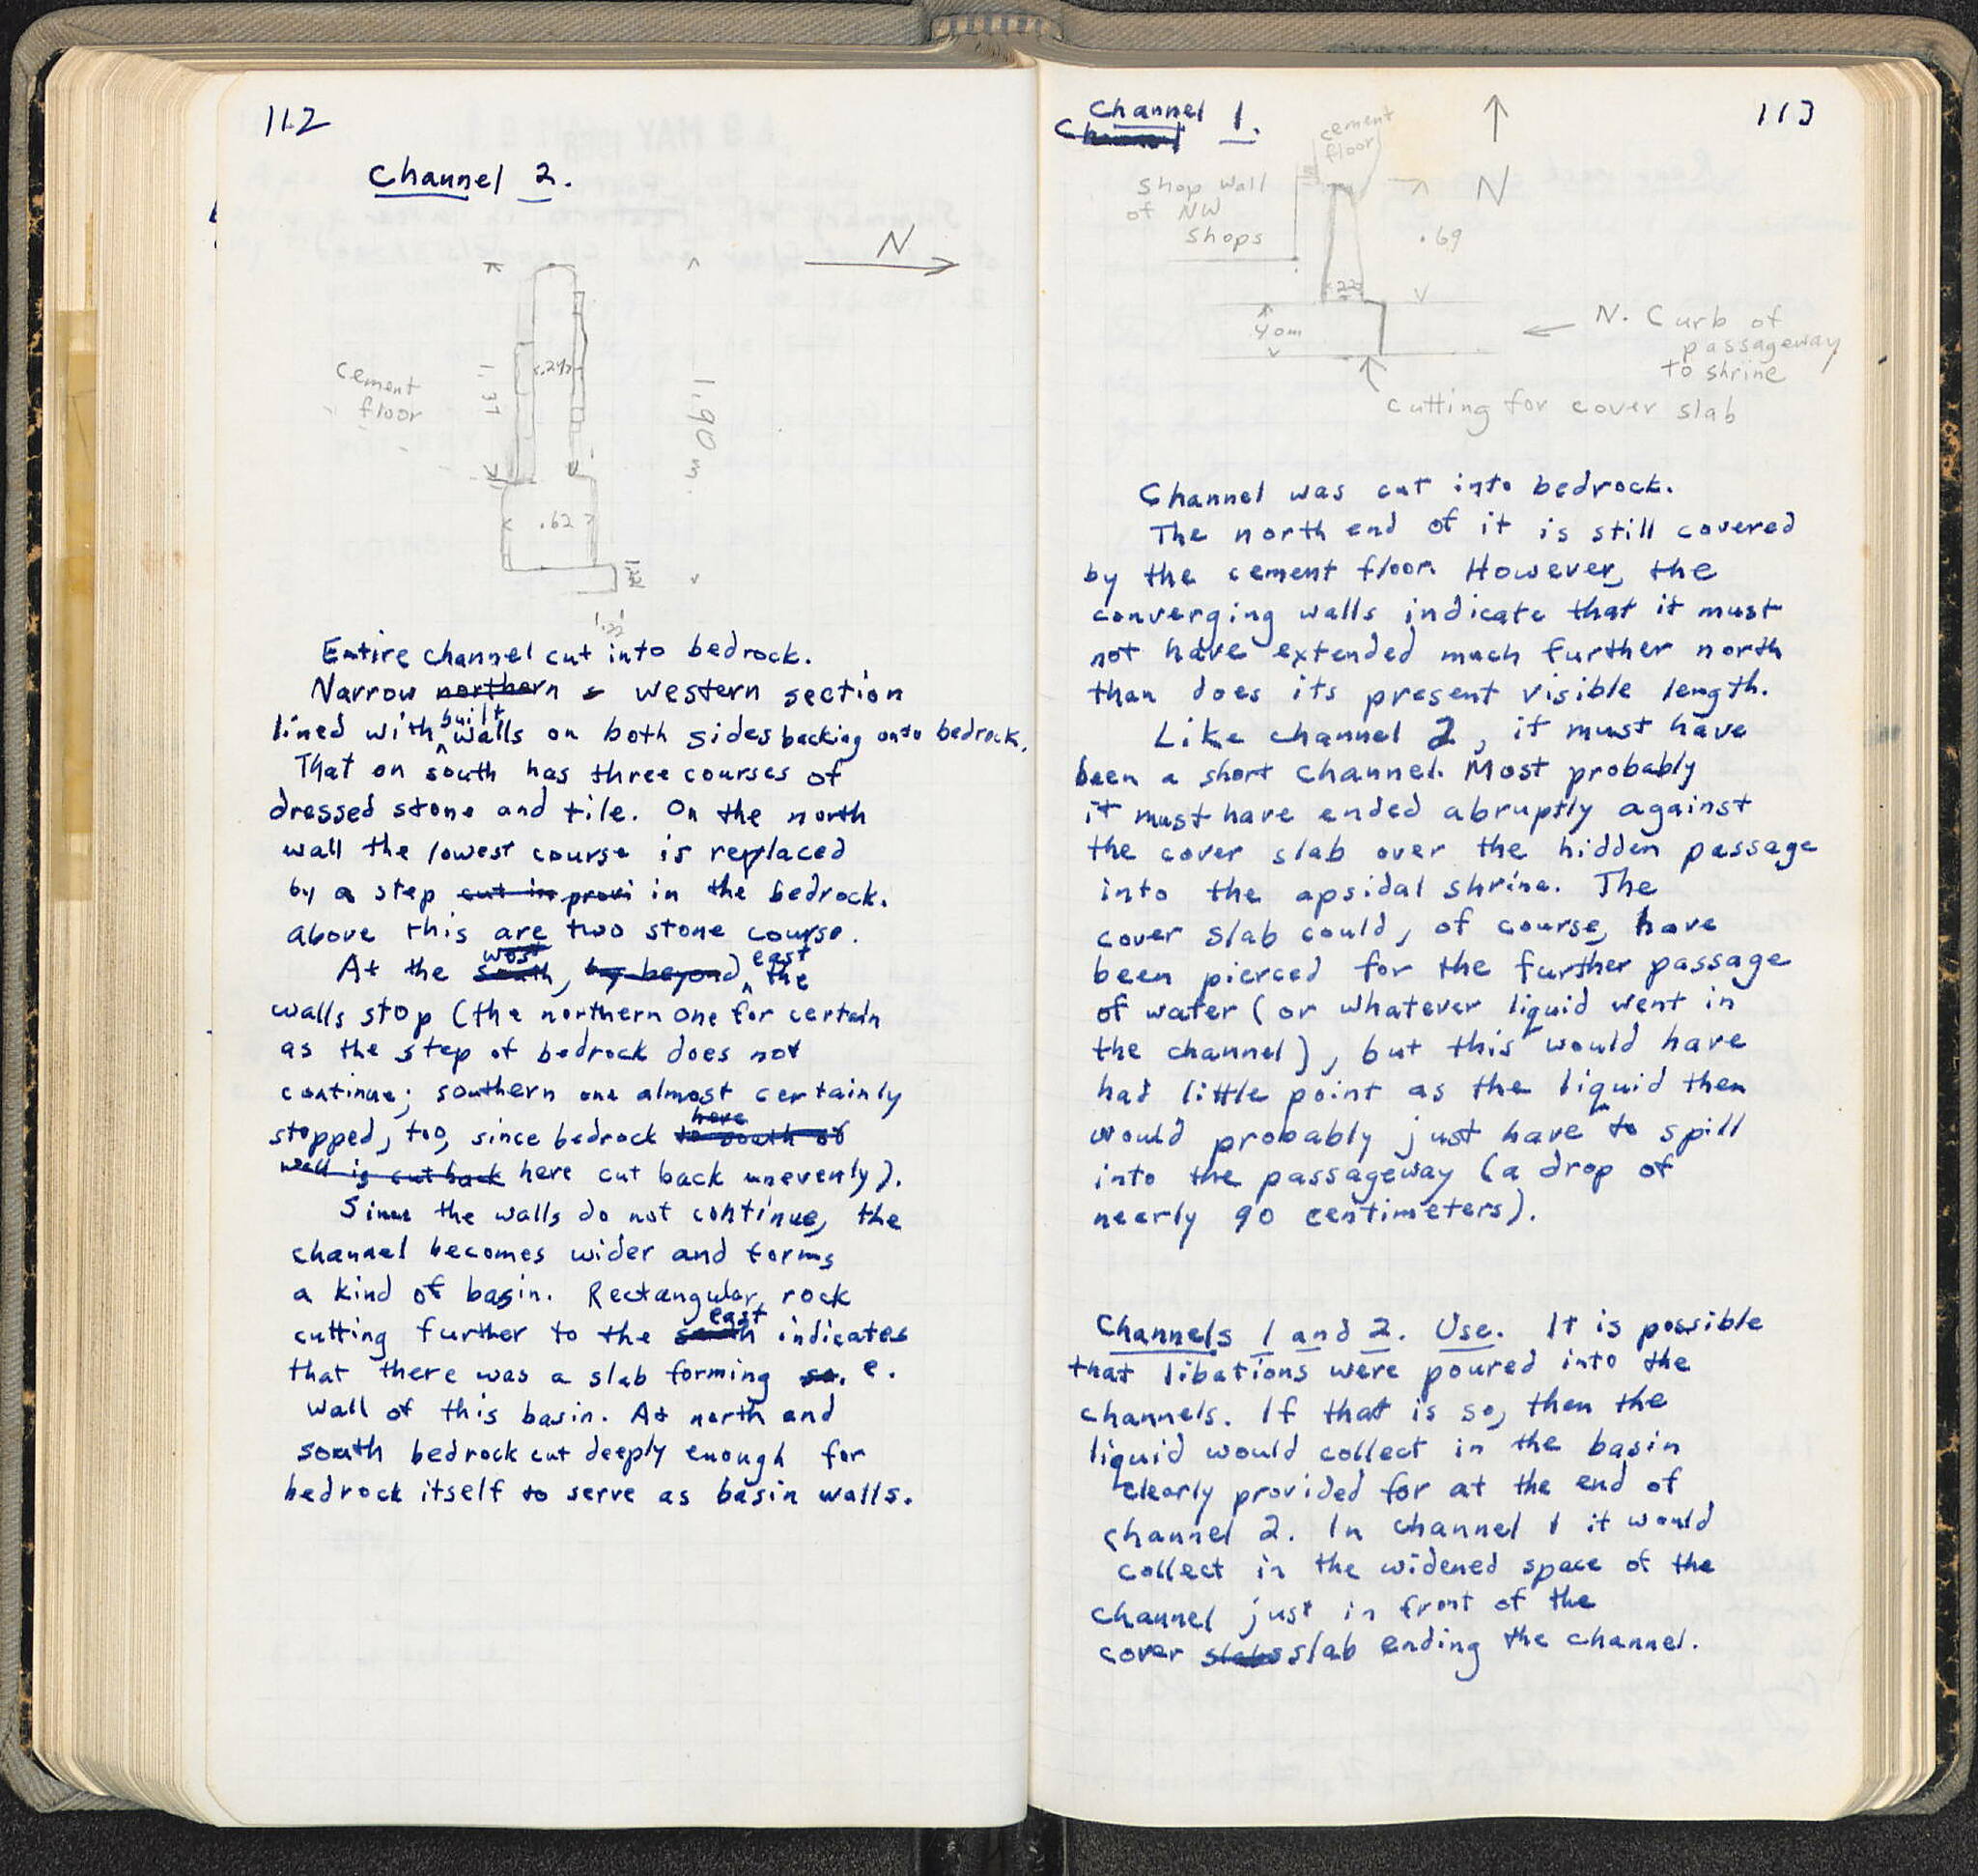 112
Channel 2.
N
cement
floor
1.37
.29
1.90 m.
.62
Entire channel cut into bedrock.
Narrow northern & western section
lined with built walls on both sides backing onto bedrock.
That on south has three courses of
dressed stone and tile. On the north
wall the lowest course is replaced
by a step cut in provi in the bedrock.
above this are two stone course.
At the south, west by beyond, east the
walls stop (the northern one for certain
as the step of bedrock does not
continue; southern one almost certainly
stopped, too, since bedrock to south of here
wall is cut back here cut back unevenly).
Since the walls do not continue, the
channel becomes wider and forms
a kind of basin. Rectangular rock
cutting further to the south east indicates
that there was a slab forming so. e.
wall of this basin. At north and
south bedrock cut deeply enough for
bedrock itself to serve as basin walls.
113
Channel 1.
Channel
cement
floor
N
Shop wall
of NW
Shops
.69
.22
40m
N. Curb of
passageway
to shrine
cutting for cover slab
Channel was cut into bedrock.
The north end of it is still covered
by the cement floor. However, the
converging walls indicate that it must
not have extended much further north
than does its present visible length.
Like channel 2, it must have
been a short channel. Most probably
it must have ended abruptly against
the cover slab over the hidden passage
into the apsidal shrine. The
cover slab could, of course, have
been pierced for the further passage
of water (or whatever liquid went in
the channel), but this would have
had little point as the liquid then
would probably just have to spill
into the passageway (a drop of
nearly 90 centimeters).
Channels 1 and 2. Use. It is possible
that libations were poured into the
channels. If that is so, then the
liquid would collect in the basin
clearly provided for at the end of
channel 2. In channel 1 it would
collect in the widened space of the
channel just in front of the
cover slabs slab ending the channel.